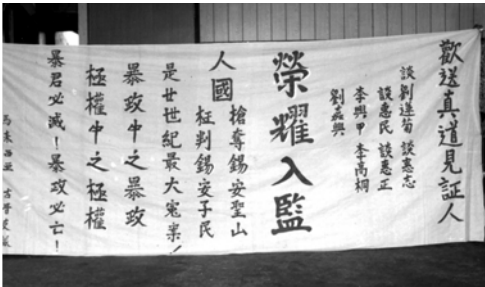 歡送真道見証人
談劉蓮 談惠志
談惠民 談惠正
李興甲 李高桐
劉嘉興
榮耀入監
人國
槍奪錫安聖山
枉判錫安子民
是廿世紀最大冤案！
暴政中之暴政
極權中之極權
暴君必滅！暴政必亡！
馬來西亞 古晉